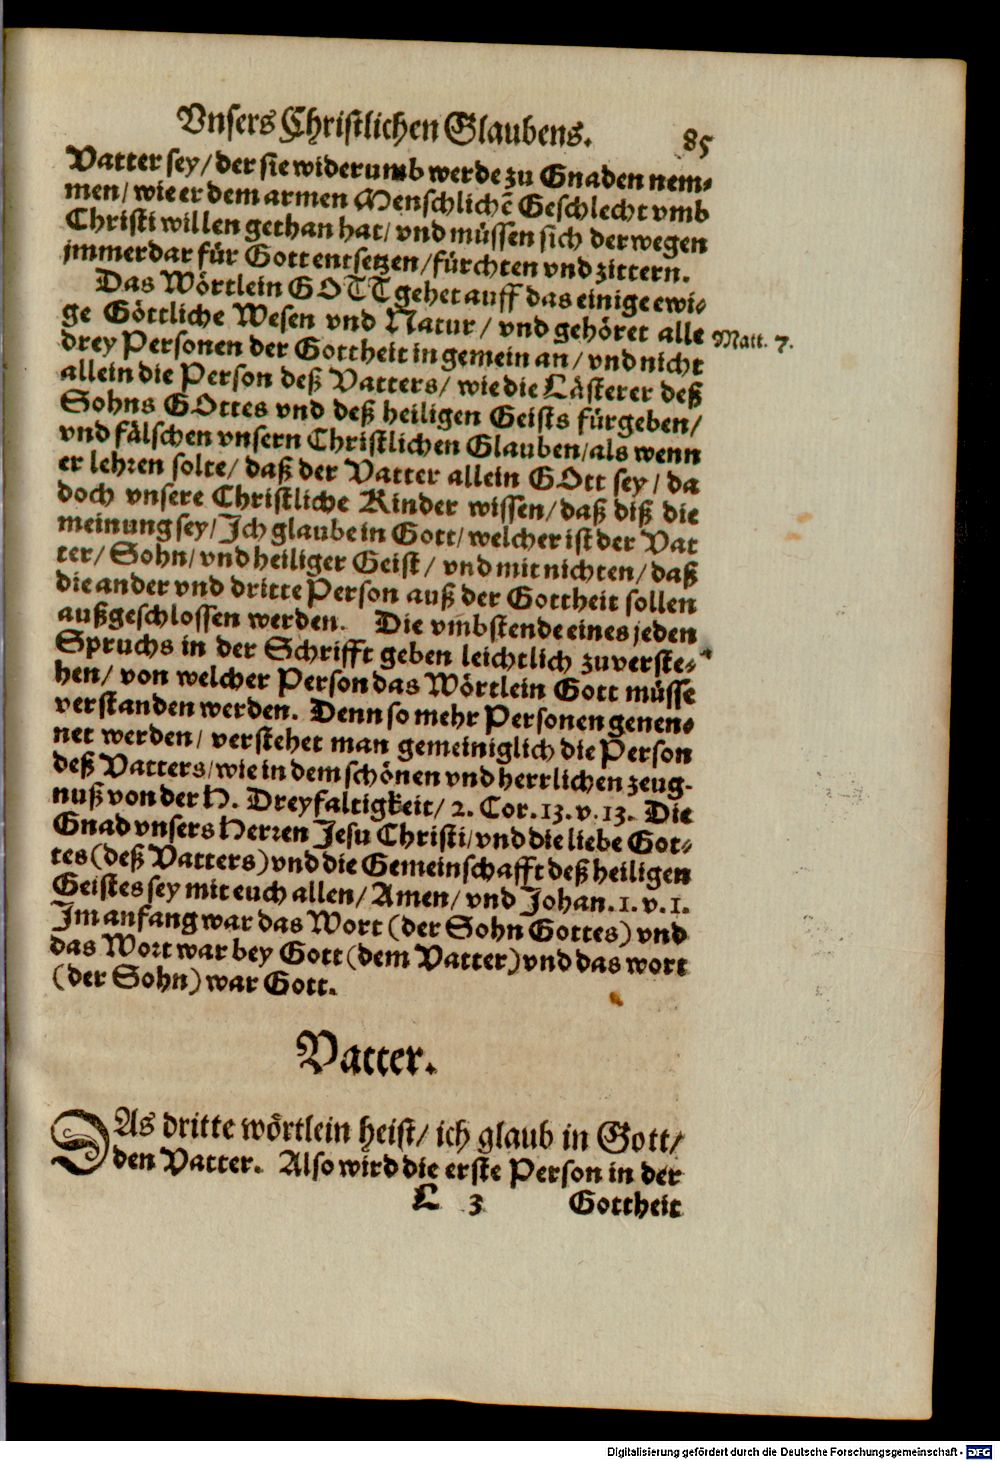 Vnsers Christlichen Glaubens. 85
Vatter sey/ der sie widerumb werde zu Gnaden nem-
men/ wie er dem armen Menschlichē Geschlecht vmb
Christi willen gethan hat/ vnd müssen sich derwegen
jmmerdar für Gott entsetzen/ fürchten vnd zittern.
Das Wörtlein GOTT gehet auff das einige ewi-
ge Göttliche Wesen vnd Natur/ vnd gehöret alle
Matt. 7.
drey Personen der Gottheit in gemein an/ vnd nicht
allein die Person deß Vatters/ wie die Lästerer deß
Sohns GOttes vnd deß heiligen Geists fürgeben/
vnd fälschen vnsern Christlichen Glauben/ als wenn
er lehren solte/ daß der Vatter allein GOtt sey/ da
doch vnsere Christliche Kinder wissen/ daß diß die
meinung sey/ Ich glaube in Gott/ welcher ist der Vat
ter/ Sohn/ vnd heiliger Geist/ vnd mit nichten/ daß
die ander vnd dritte Person auß der Gottheit sollen
außgeschlossen werden. Die vmbstende eines jeden
Spruchs in der Schrifft geben leichtlich zuverste-
hen/ von welcher Person das Wörtlein Gott müsse
verstanden werden. Denn so mehr Personen genen-
net werden/ verstehet man gemeiniglich die Person
deß Vatters/ wie in dem schönen vnd herrlichen zeug-
nuß von der H. Dreyfaltigkeit/ 2. Cor. 13. v. 13. Die
Gnad vnsers Herren Jesu Christi/ vnd die liebe Got-
tes (deß Vatters) vnd die Gemeinschafft deß heiligen
Geistes sey mit euch allen/ Amen/ vnd Johan. 1. v. 1.
Im anfang war das Wort (der Sohn Gottes) vnd
das Wort war bey Gott (dem Vatter) vnd das wort
(der Sohn) war Gott.
Vatter.
DAs dritte wörtlein heist/ ich glaub in Gott/
den Vatter. Also wird die erste Person in der
L 3 Gottheit
Digitalisierung gefördert durch die Deutsche Forschungsgemeinschaft - DFG